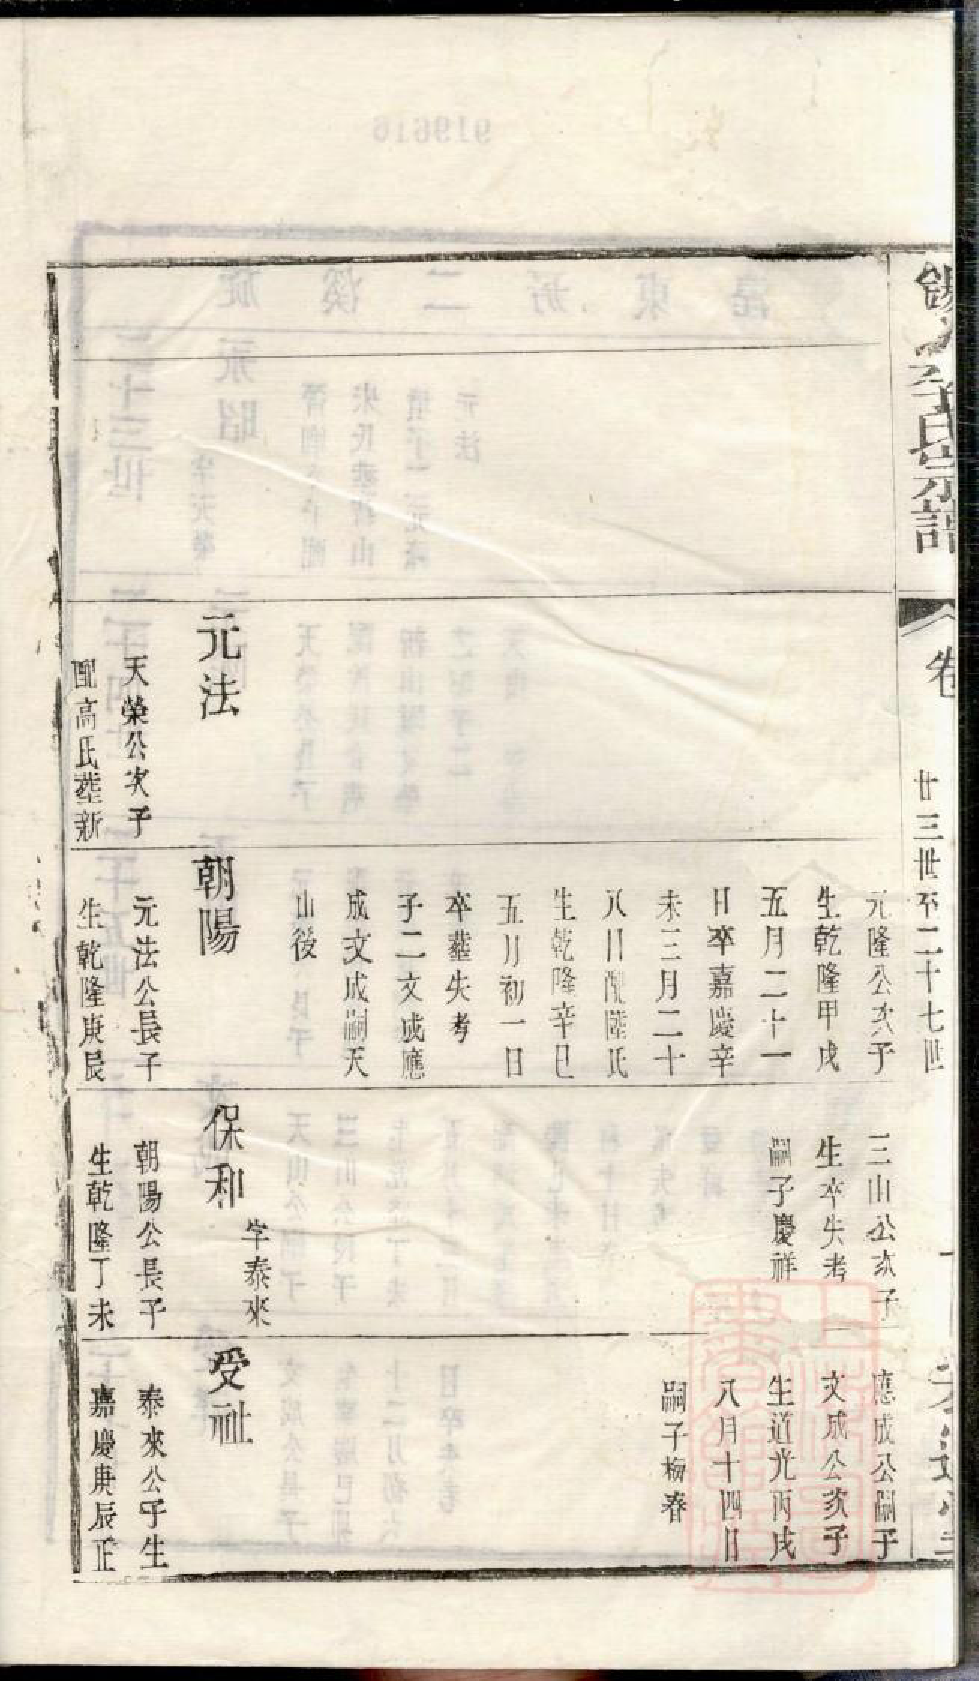 李氏宗譜
卷
廿三世至二十七世
元法
天榮公次子
配高氏塟新
元隆公次子
生乾隆甲戌
五月二十一
日卒嘉慶辛
未三月二十
八日配陸氏
生乾隆辛巳
五月初一日
卒塟失考
子二文成應
成文成嗣天
山後
朝陽
元法公長子
生乾隆庚辰
三山公次子
生卒失考
嗣子慶祥
保和
字泰來
朝陽公長子
生乾隆丁未
應成公嗣子
文成公次子
生道光丙戌
八月十四日
嗣子梅春
受祉
泰來公子生
嘉慶庚辰正